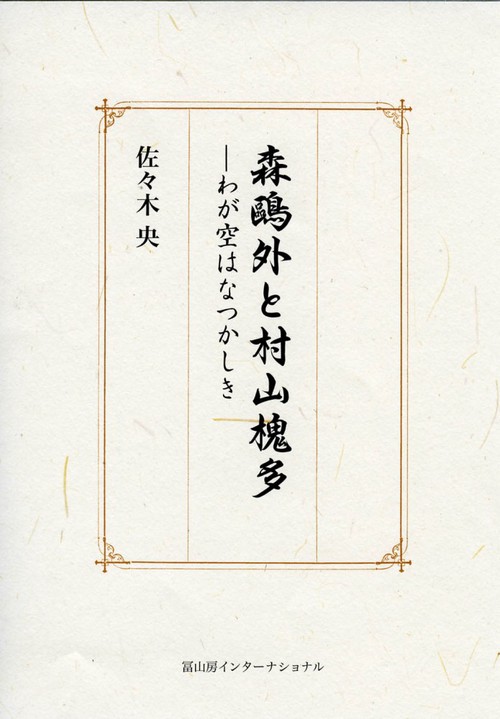 森鷗外と村山槐多
―わが空はなつかしき
佐々木 央
冨山房インターナショナル